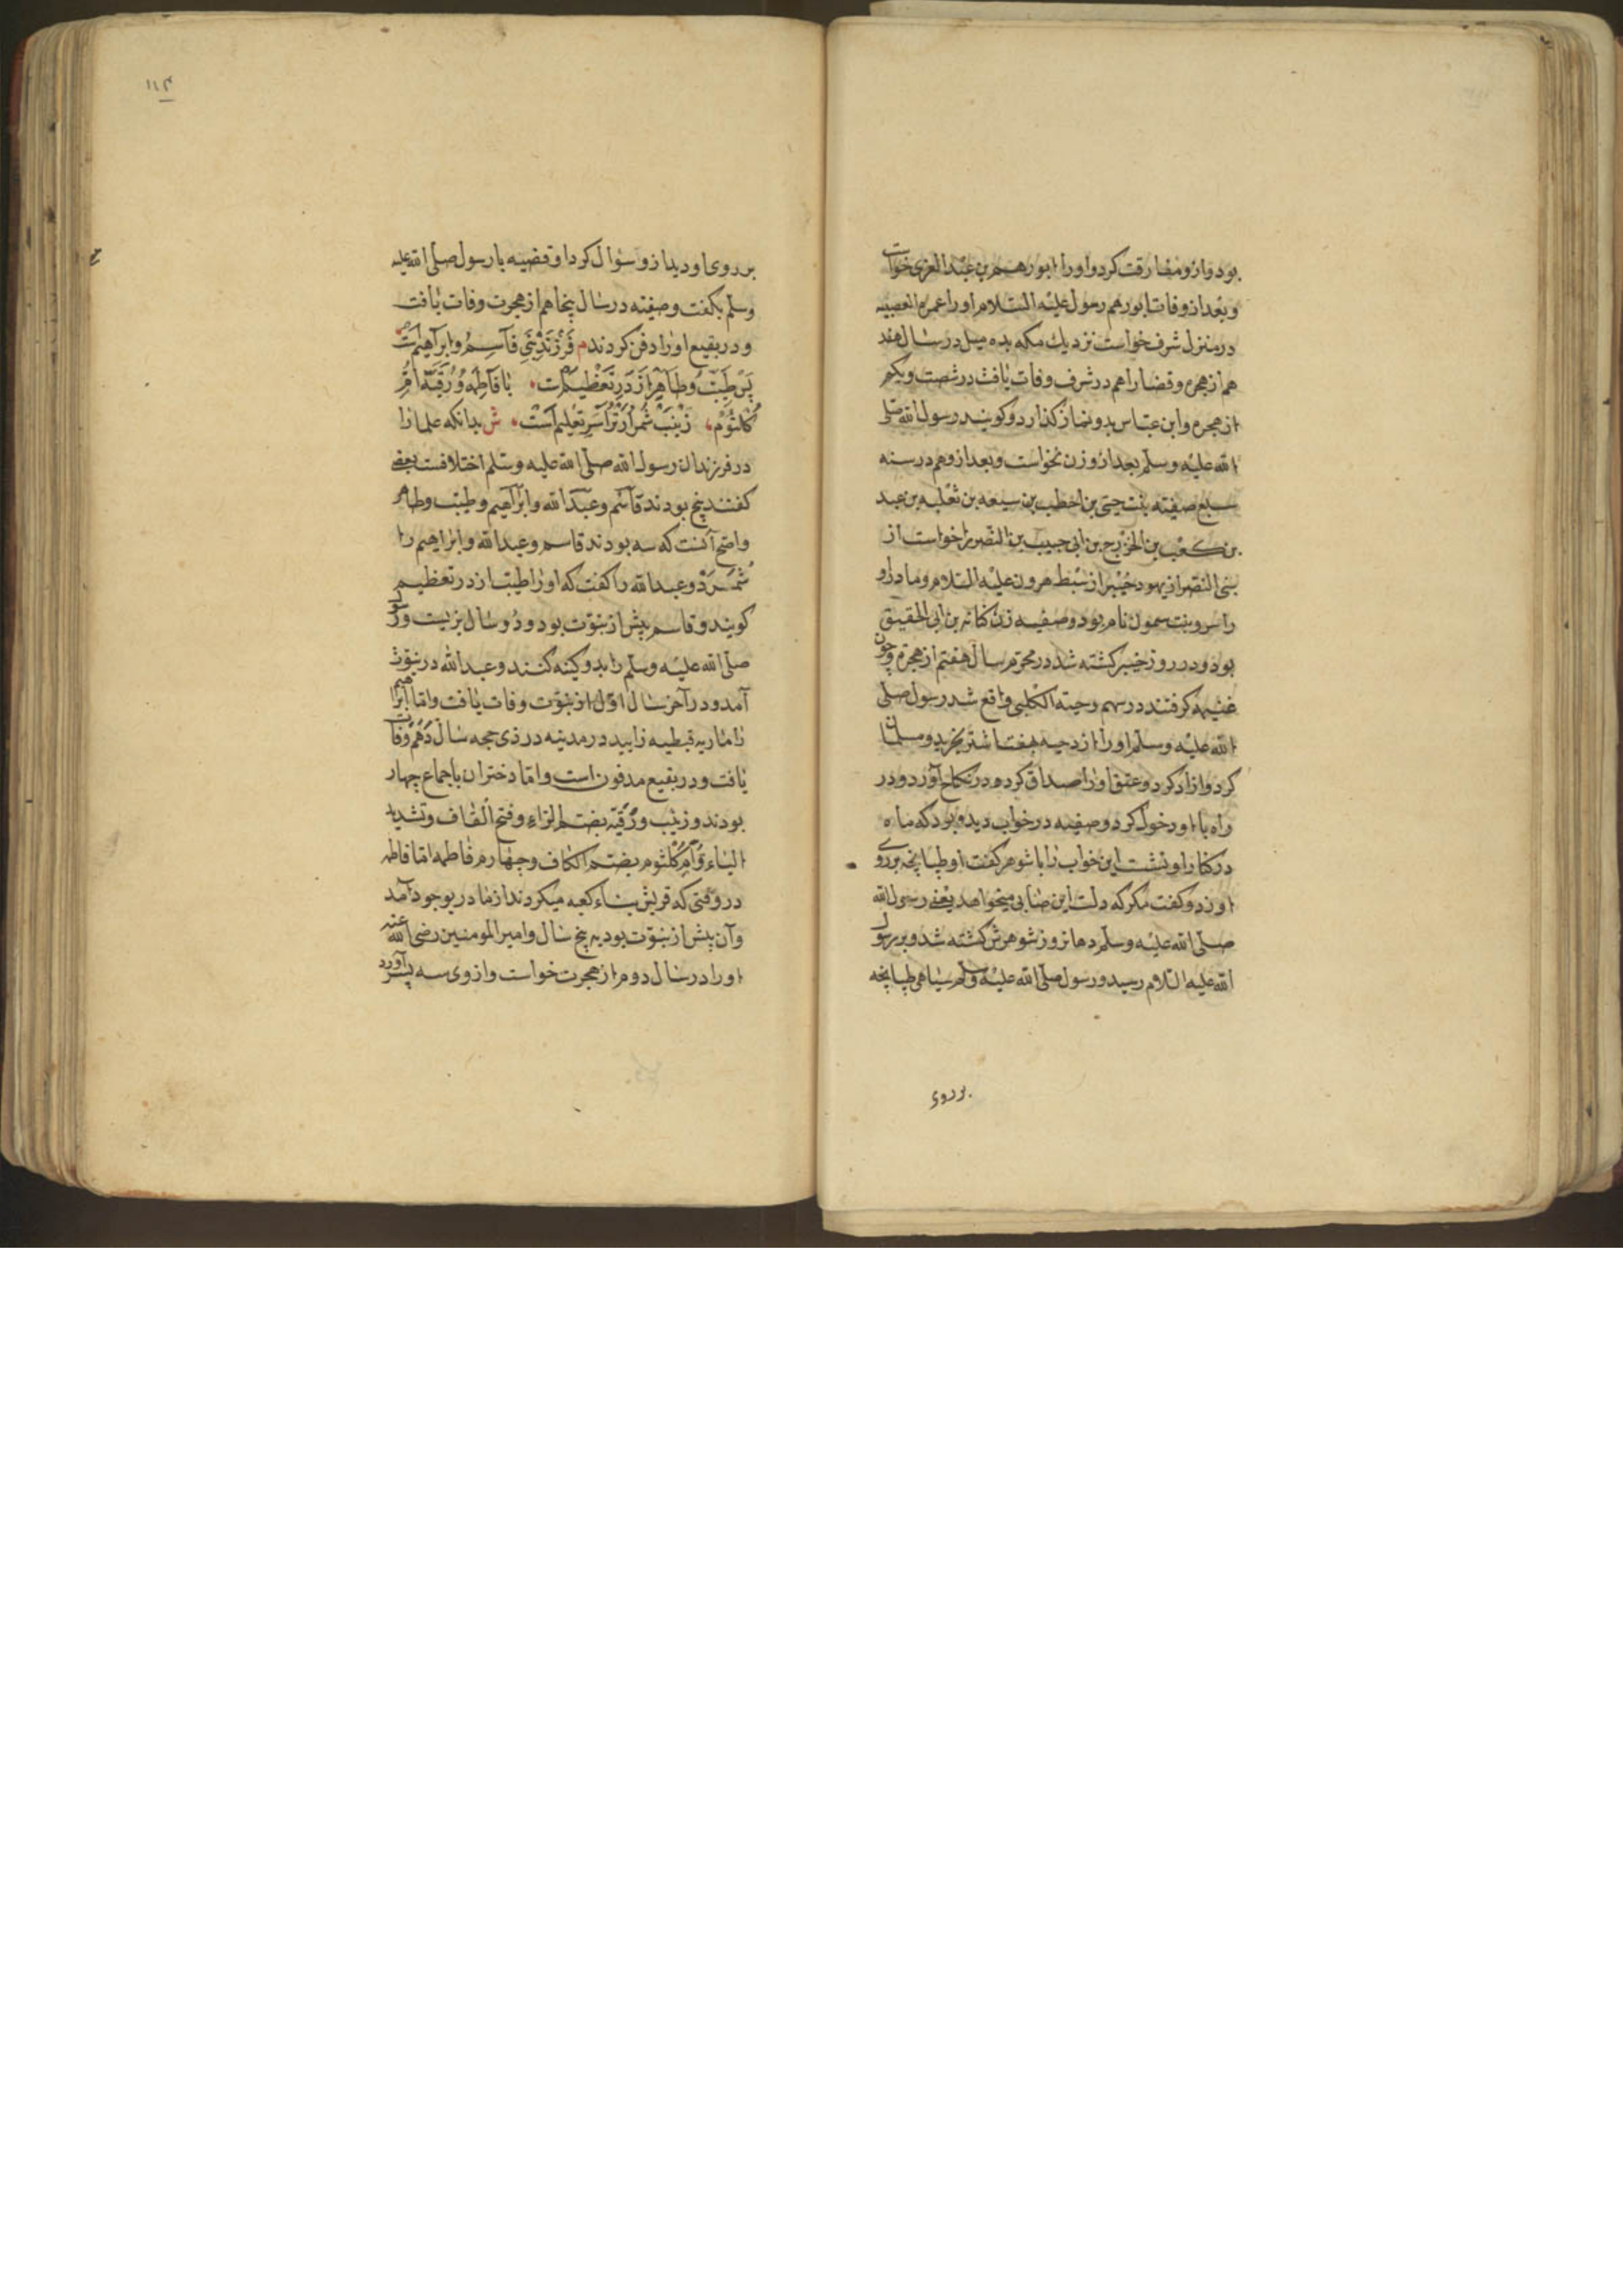 بود و ازو مفارقت کرد و او را ابو رهم بن عبد العزی خواست
و بعد از وفات ابو رهم رسول علیه السلام او را عمره القصیه
در منزل شرف خواست نزدیك مکه بده میل در سال هفت
هم از هجره و قضا را هم در شرف وفات یافت در شصت و یکم
از هجره و ابن عباس بدو نماز کذارد و کویند رسول الله صلی
الله علیه وسلم بعد از و زن نخواست و بعد ازو هم در سنه
سبع صفیته بنت حیی بن اخطب بن سیعه بن ثعلبه بن عبد
بن کعب بن الخزرج بن ابی حبیب بن النضیر را خواست از
بنی النضر از یهود خیبر از سبط هرون علیه السلام و مادر او
را بنت سمول نام بود و صفیه زن کنانه بن ابی الحقیق
بود و در روز خیبر کشته شد در محرم سال هفتم از هجره و چون
غنیمه کرفتند در سهم دحیة الکلبی واقع شد رسول صلی
الله علیه وسلم او را از دحیه بهفت اشتر بخرید و مسلمان
کرد و ازاد کرد و عتق او را صداق کرده در نکاح آورد و در
راه با او دخول کرد و صفیه در خواب دیده بود که ماه
در کنار او نشست این خواب را با شوهر کفت او طپانچه بر روی
او زد و کفت مکر که دلت این صنابی میخواهد یعنی رسول الله
صلی الله علیه وسلم دهانروز شوهرش کشته شد و بر رسول
الله علیه السلام رسید و رسول صلی الله علیه وسلم سیاهی طپانچه
بر روی
۱۱۴
بر روی او دید ازو سؤال کرد او قضیه با رسول صلی الله علیه
وسلم بکفت و صفیته در سال پنجاهم از هجرت وفات یافت
و در بقیع او را دفن کردند م فرزند نبی قاسم و ابراهیم است
پس طیب و طاهر از در تعظیم است یا فاطمه و رقیه ام
کلثوم زینب شمر ار ترا سر تعلیم است ش بدانکه علما را
در فرزندان رسول الله صلی الله علیه وسلم اختلافست بعضی
کفتند پنج بودند قاسم و عبد الله و ابراهیم و طیب و طاهر
و اصح آنست که سه بودند قاسم و عبد الله و ابراهیم را
شمرد و عبد الله را کفت که او را طیب از در تعظیم
کویند و قاسم پیش از نبوت بود و دو سال بزیست و رسول
صلی الله علیه وسلم را بدو کینه کنند و عبد الله در نبوت
آمد و در آخر سال اول از نبوت وفات یافت و اما ابراهیم
را ماریه قبطیه زایید در مدینه در ذی حجه سال دهم وفات
یافت و در بقیع مدفون است و اما دختران باجماع چهار
بودند و زینب و رقیه بضم الراء و فتح القاف و تشدید
الیاء و ام کلثوم بضم الکاف و چهارم فاطمه اما فاطمه
در وقتی که قریش بناء کعبه میکردند از مادر بوجود آمد
و آن پیش از نبوت بود به پنج سال و امیر المومنین رضی الله عنه
او را در سال دوم از هجرت خواست و از وی سه پسر آورد